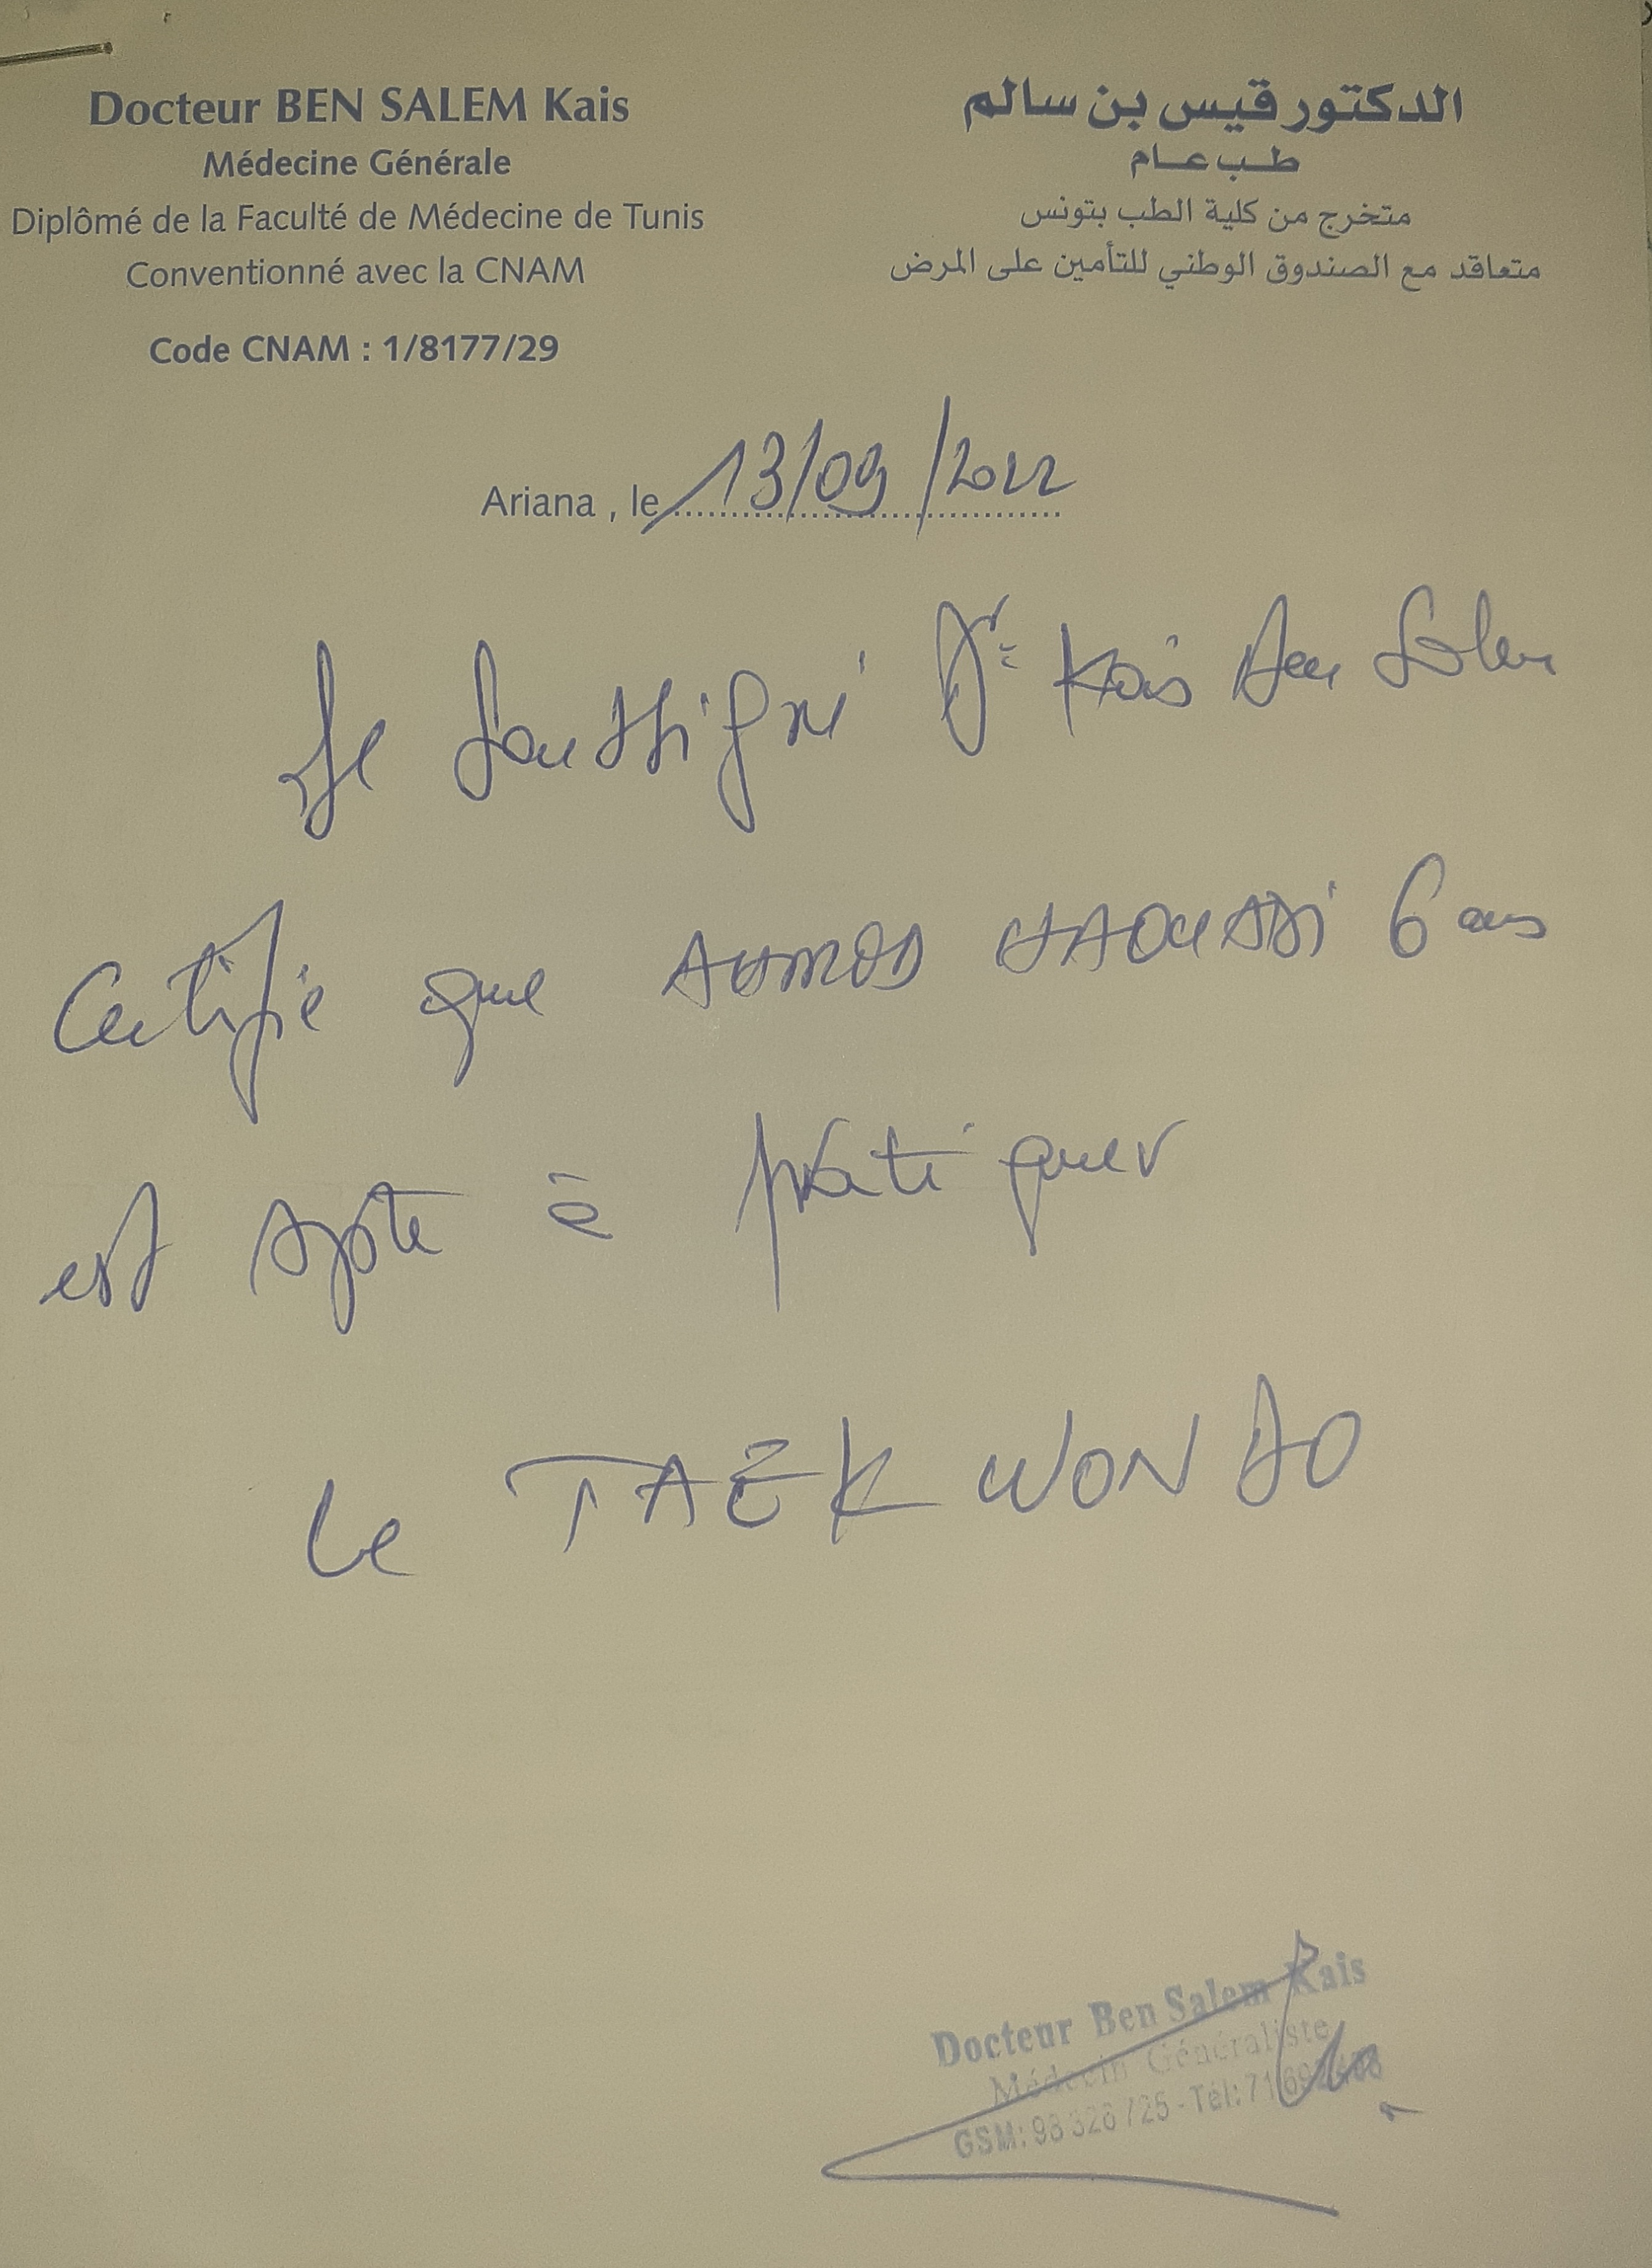 Docteur BEN SALEM Kais
Médecine Générale
Diplômé de la Faculté de Médecine de Tunis
Conventionné avec la CNAM
Code CNAM : 1/8177/29
الدكتور قيس بن سالم
طب عام
متخرج من كلية الطب بتونس
متعاقد مع الصندوق الوطني للتأمين على المرض
Ariana , le 13/09/2022
Je soussigné Dr Kais Ben Salem
Certifie que AHMED 6 ans
est apte à pratiquer
le TAEKWONDO
Docteur Ben Salem Kais
Médecin Généraliste
GSM: - Tél: